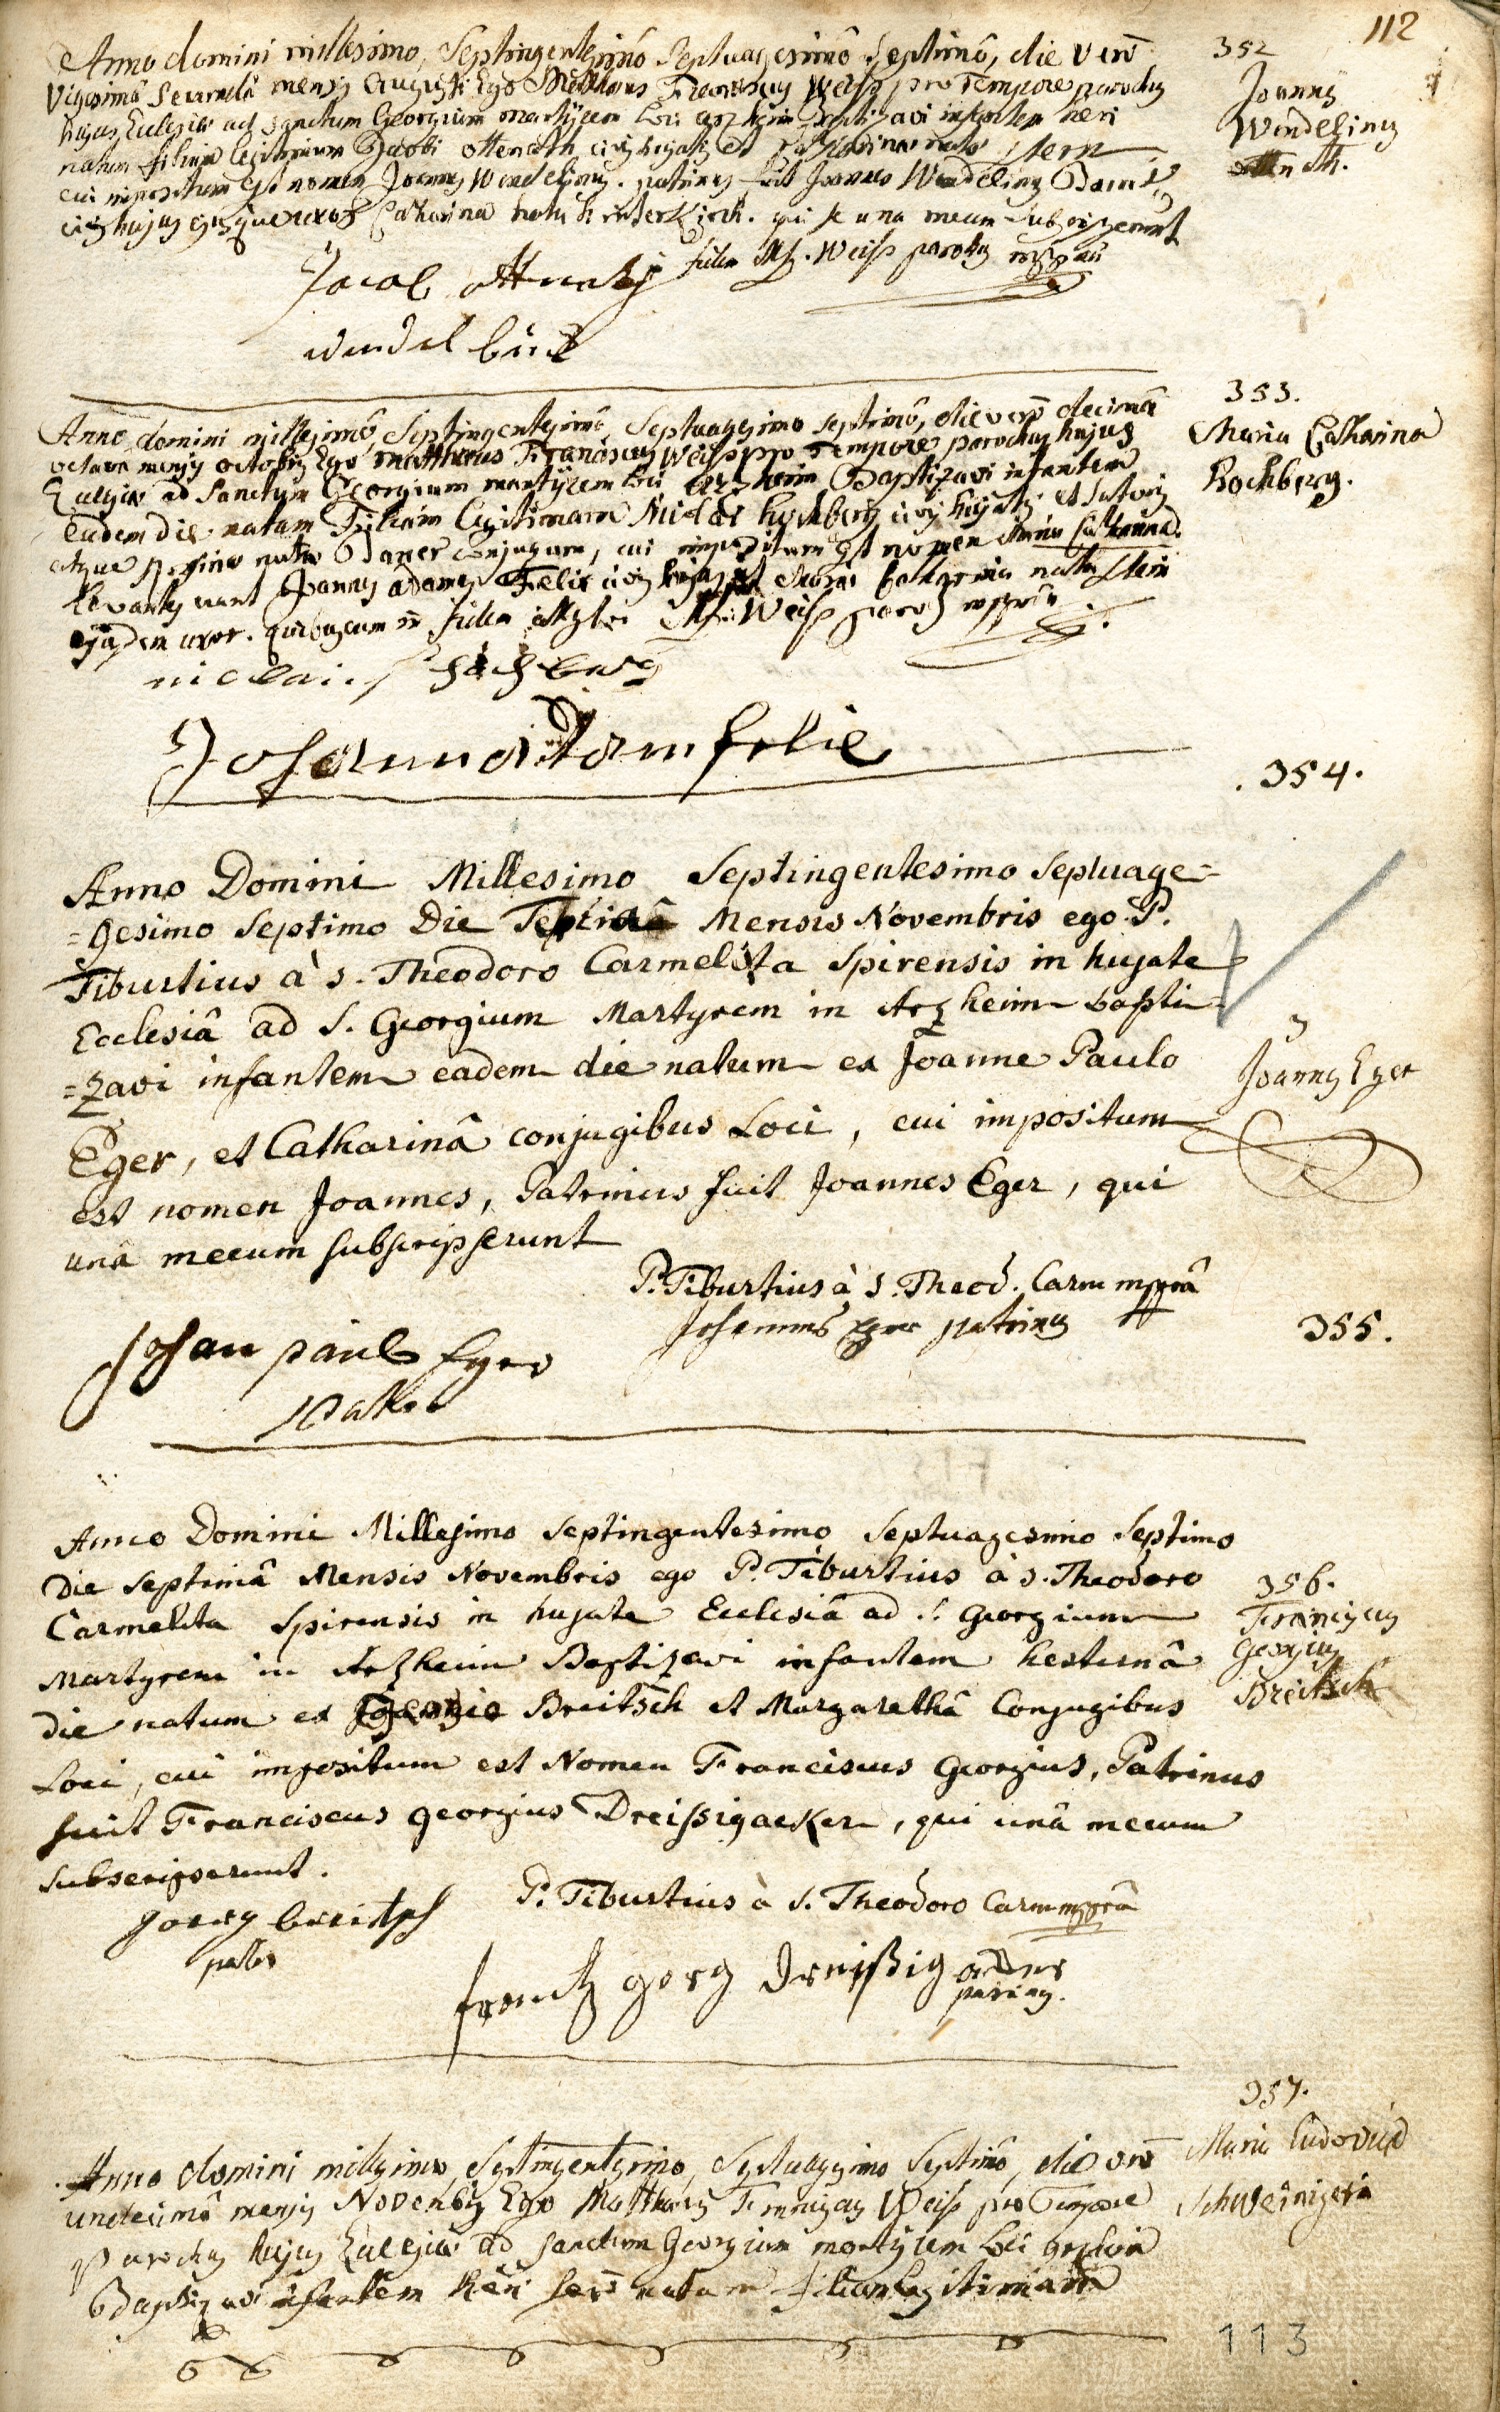 112
352
Joannes
Wendelinus
Anno domini millesimo, Septingentesimô Septuagesimô Septimô, die verô
Vigesimâ Secundâ mensis Augusti Ego Matthæus Franciscus Weiss pro Tempore parochus
hujus Ecclesiæ ad Sanctum Georgium martÿrem loci arzheim Baptizavi infantem heri
natum filium legitimum Jacobi ottenoth civis hujatis et
cui impositum est nomen Joannes Wendelinus. patrinus fuit Joannes Wendelinus
civis hujus ejusque uxor Catharina nata hinterkirch. qui se una mecum subscripserunt
in fidem Mf. Weiss parochus mppriâ
Jacob
wendel
353.
Maria Catharina
Hochberg.
Anno domini millesimô, Septingentesimô, Septuagesimo septimô, die verô decimâ
octava mensis octobris Ego Matthæus Franciscus Weiss pro Tempore parochus hujus
Ecclesiæ ad Sanctum Georgium martÿrem loci arzheim Baptizavi infantem
eadem die natam Filiam legitimam Nicolai hochberg civis hujatis et
nata Daner conjugum, cui impositum est nomen Maria Catharina.
levantes erant Joannes adamus Felix civis hujas et Catharina nata Stein
ejusdem uxor. quibuscum in fidem Mf. Weiss paroch mppriâ
niclaus hochberg
Johann adam felix
354.
Anno Domini Millesimo Septingentesimo Septuage=
=gesimo Septimo Die Septimâ Mensis Novembris ego P.
Tiburtius à S. Theodoro Carmelita Spirensis in hujate
Ecclesiâ ad S. Georgium Martyrem in Arzheim bapti=
=zavi infantem eadem die natum ex Joanne Paulo
Joannes Eger
Eger, et Catharinâ conjugibus Loci, cui impositum
est nomen Joannes, Patrinus fuit Joannes Eger, qui
unâ mecum subscripserunt
P. Tiburtius à S. Theod. Carm mppriâ
Johannes Eger patrinus
Johan paul Eger
pater
355.
Anno Domini Millesimo Septingentesimo Septuagesimo Septimo
Die Septimâ Mensis Novembris ego P. Tiburtius à S. Theodoro
Carmelita Spirensis in hujate Ecclesiâ ad S. Georgium
Martyrem in Arzheim Baptizavi infantem hesternâ
die natum ex Georgio Breitsch et Margarethâ Conjugibus
Loci, cui impositum est Nomen Franciscus Georgius, Patrinus
fuit Franciscus georgius Dreissigacker, qui unâ mecum
subscripserunt.
356.
Franciscus
Georgius
Breitsch
P. Tiburtius à S. Theodoro Carm mppriâ
Joerg breitsch
pater
frantz georg dreißigacker
patrinus.
357.
Maria Ludovica
Schweinizerin
Anno domini millesimo, Septingentesimo, Septuagesimo Septimô, die verô
undecimâ mensis Novembris Ego Matthæus Franciscus Weiss pro Tempore
Parochus hujus Ecclesiæ ad Sanctum Georgium martÿrem loci arzheim
Baptizavi infantem heri natam filiam legitimam
113